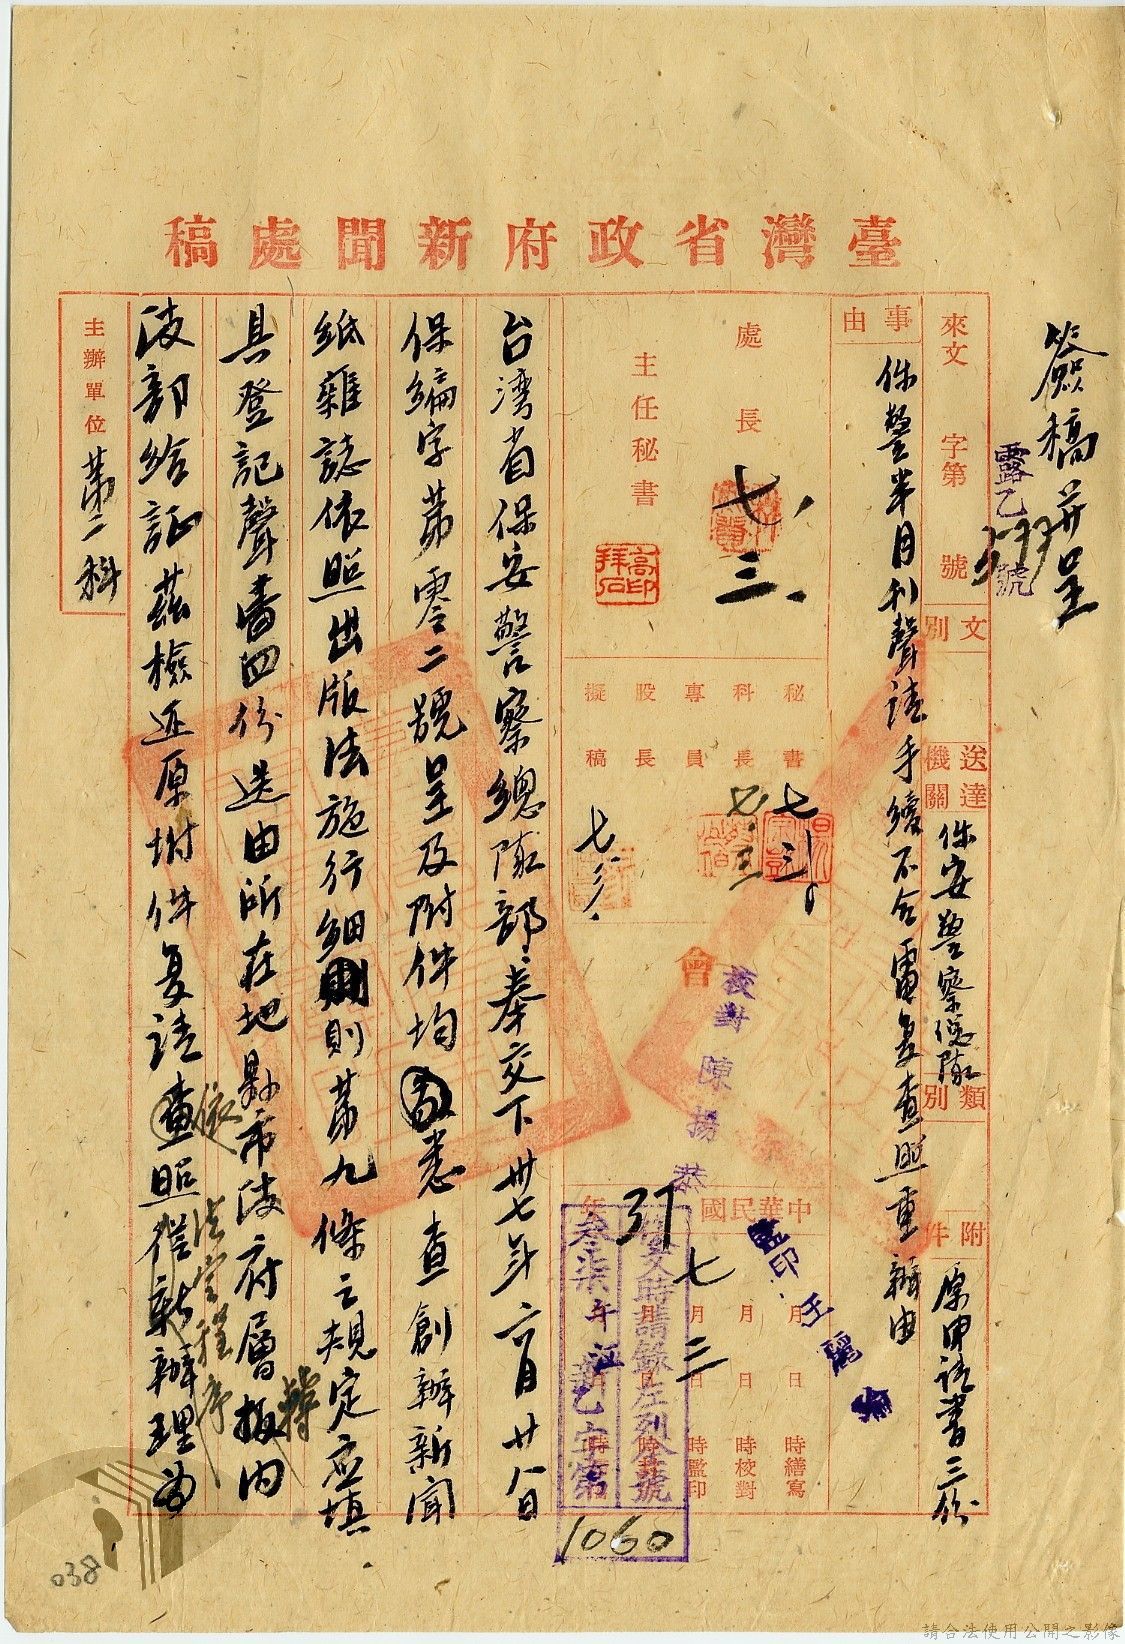 臺灣省政府新聞處稿
簽稿并呈
來文 字第 號
露乙 號
文別
送達機關 保安警察總隊
類別
附件 原申請書三份
事由 保警半月刊聲請手續不合電复查照重辦由
處長 七、三、
主任秘書
高拜石印
秘書 七、三、
科長 七、三
專員
股長
擬稿 七、三、
會
校對 陳揚
監印 王
中華民國 37 年
七月三日
月 日 時繕寫
月 日 時校對
月 日 時監印
發文時請錄左列全號
叁柒年江 新乙字第
1060
台湾省保安警察總隊部:奉交下卅七年六月廿八日
保編字第零二號呈及附件均悉查創辦新聞
紙雜誌依照出版法施行細則第九條之規定应填
具登記聲書四份送由所在地縣市政府層報內
轉
政部給証茲檢还原附件复請查照從新辦理為
依法定程序
主辦單位 第二科
038
請合法使用公開之影像